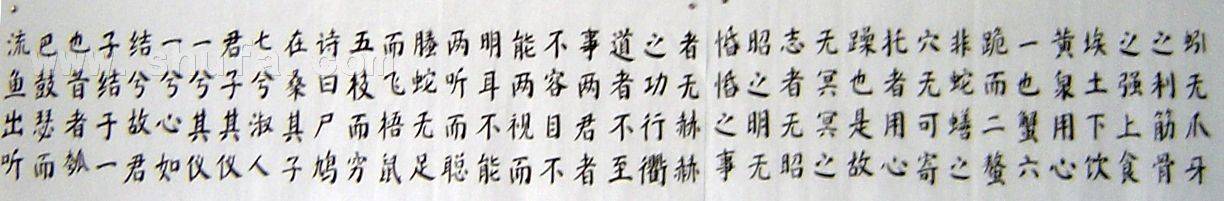 蚓无爪牙
之利筋骨
之强上食
埃土下饮
黄泉用心
一也蟹六
跪而二螯
非蛇蟮之
穴无可寄
托者用心
躁也是故
无冥冥之
志者无昭
昭之明无
惛惛之事
者无赫赫
之功行衢
道者不至
事两君者
不容目不
能两视而
明耳不能
两听而聪
螣蛇无足
而飞梧鼠
五枝而穷
诗曰尸鸠
在桑其子
七兮淑人
君子其仪
一兮其仪
一兮心如
结兮故君
子结于一
也昔者瓠
巴鼓瑟而
流鱼出听